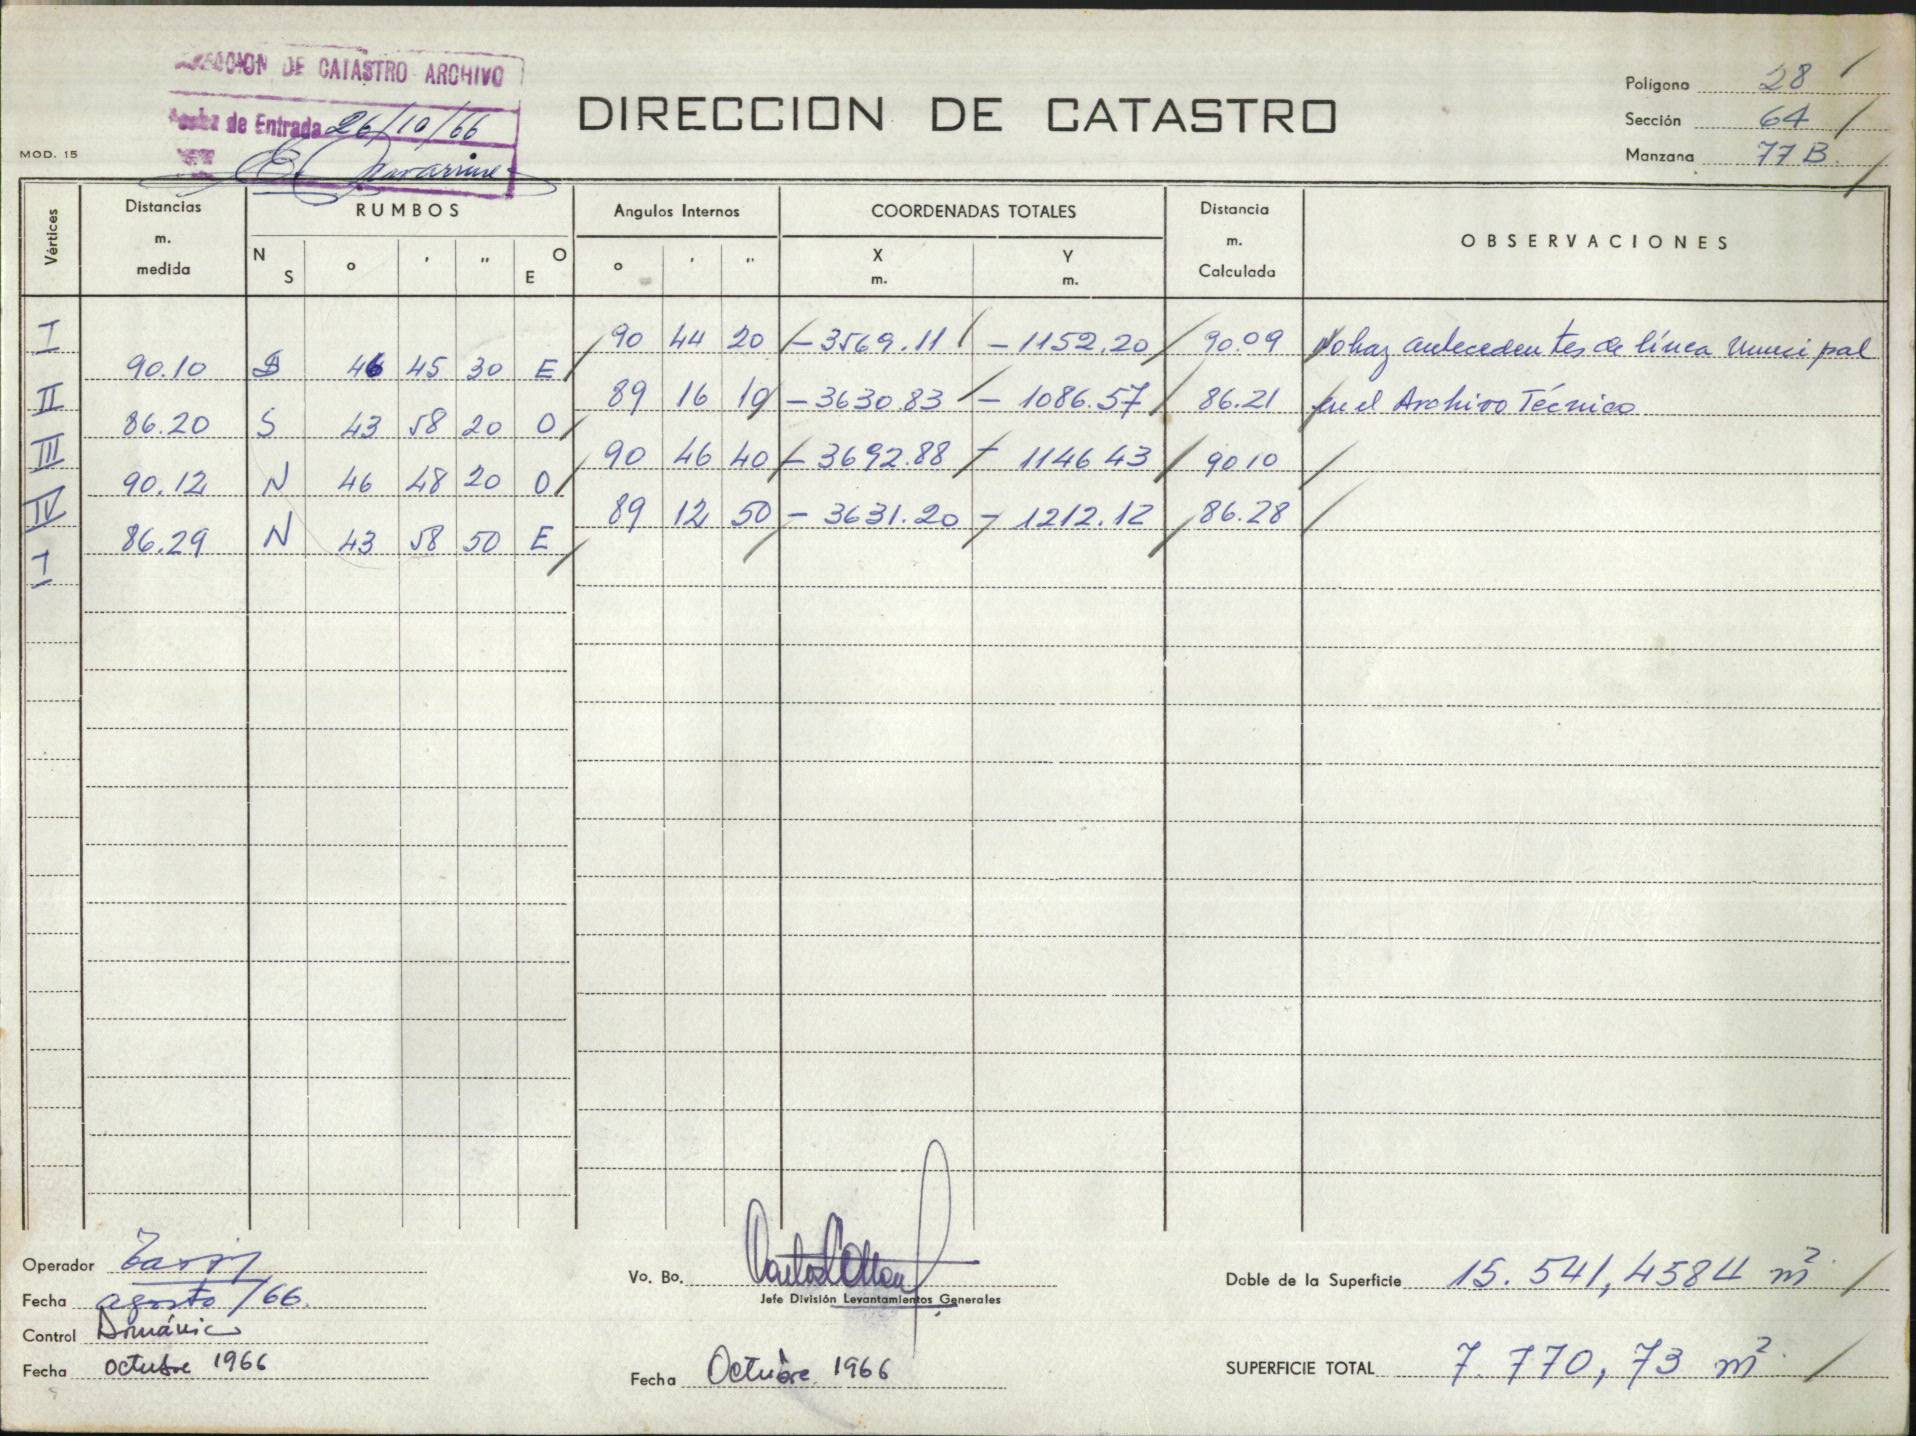 DE CATASTRO ARCHIVO
de Entrada 26/10/66
MOD. 15
DIRECCION DE CATASTRO
Polígono 28
Sección 64
Manzana 77 B
Vértices
Distancias m. medida
RUMBOS
N S ° ' " O E
Angulos Internos
° ' "
COORDENADAS TOTALES
X m. Y m.
Distancia m. Calculada
OBSERVACIONES
I 90 44 20 -3569.11 -1152.20 90.09 No hay antecedentes de línea Municipal
90.10 S 46 45 30 E
II 89 16 10 -3630.83 -1086.57 86.21 en el Archivo Técnico
86.20 S 43 58 20 O
III 90 46 40 -3692.88 -1146.43 90.10
90.12 N 46 48 20 O
IV 89 12 50 -3631.20 -1212.12 86.28
86.29 N 43 58 50 E
I
Operador
Fecha agosto/66.
Control
Fecha octubre 1966
Vo. Bo.
Jefe División Levantamientos Generales
Fecha Octubre 1966
Doble de la Superficie 15.541,4584 m²
SUPERFICIE TOTAL 7.770,73 m²